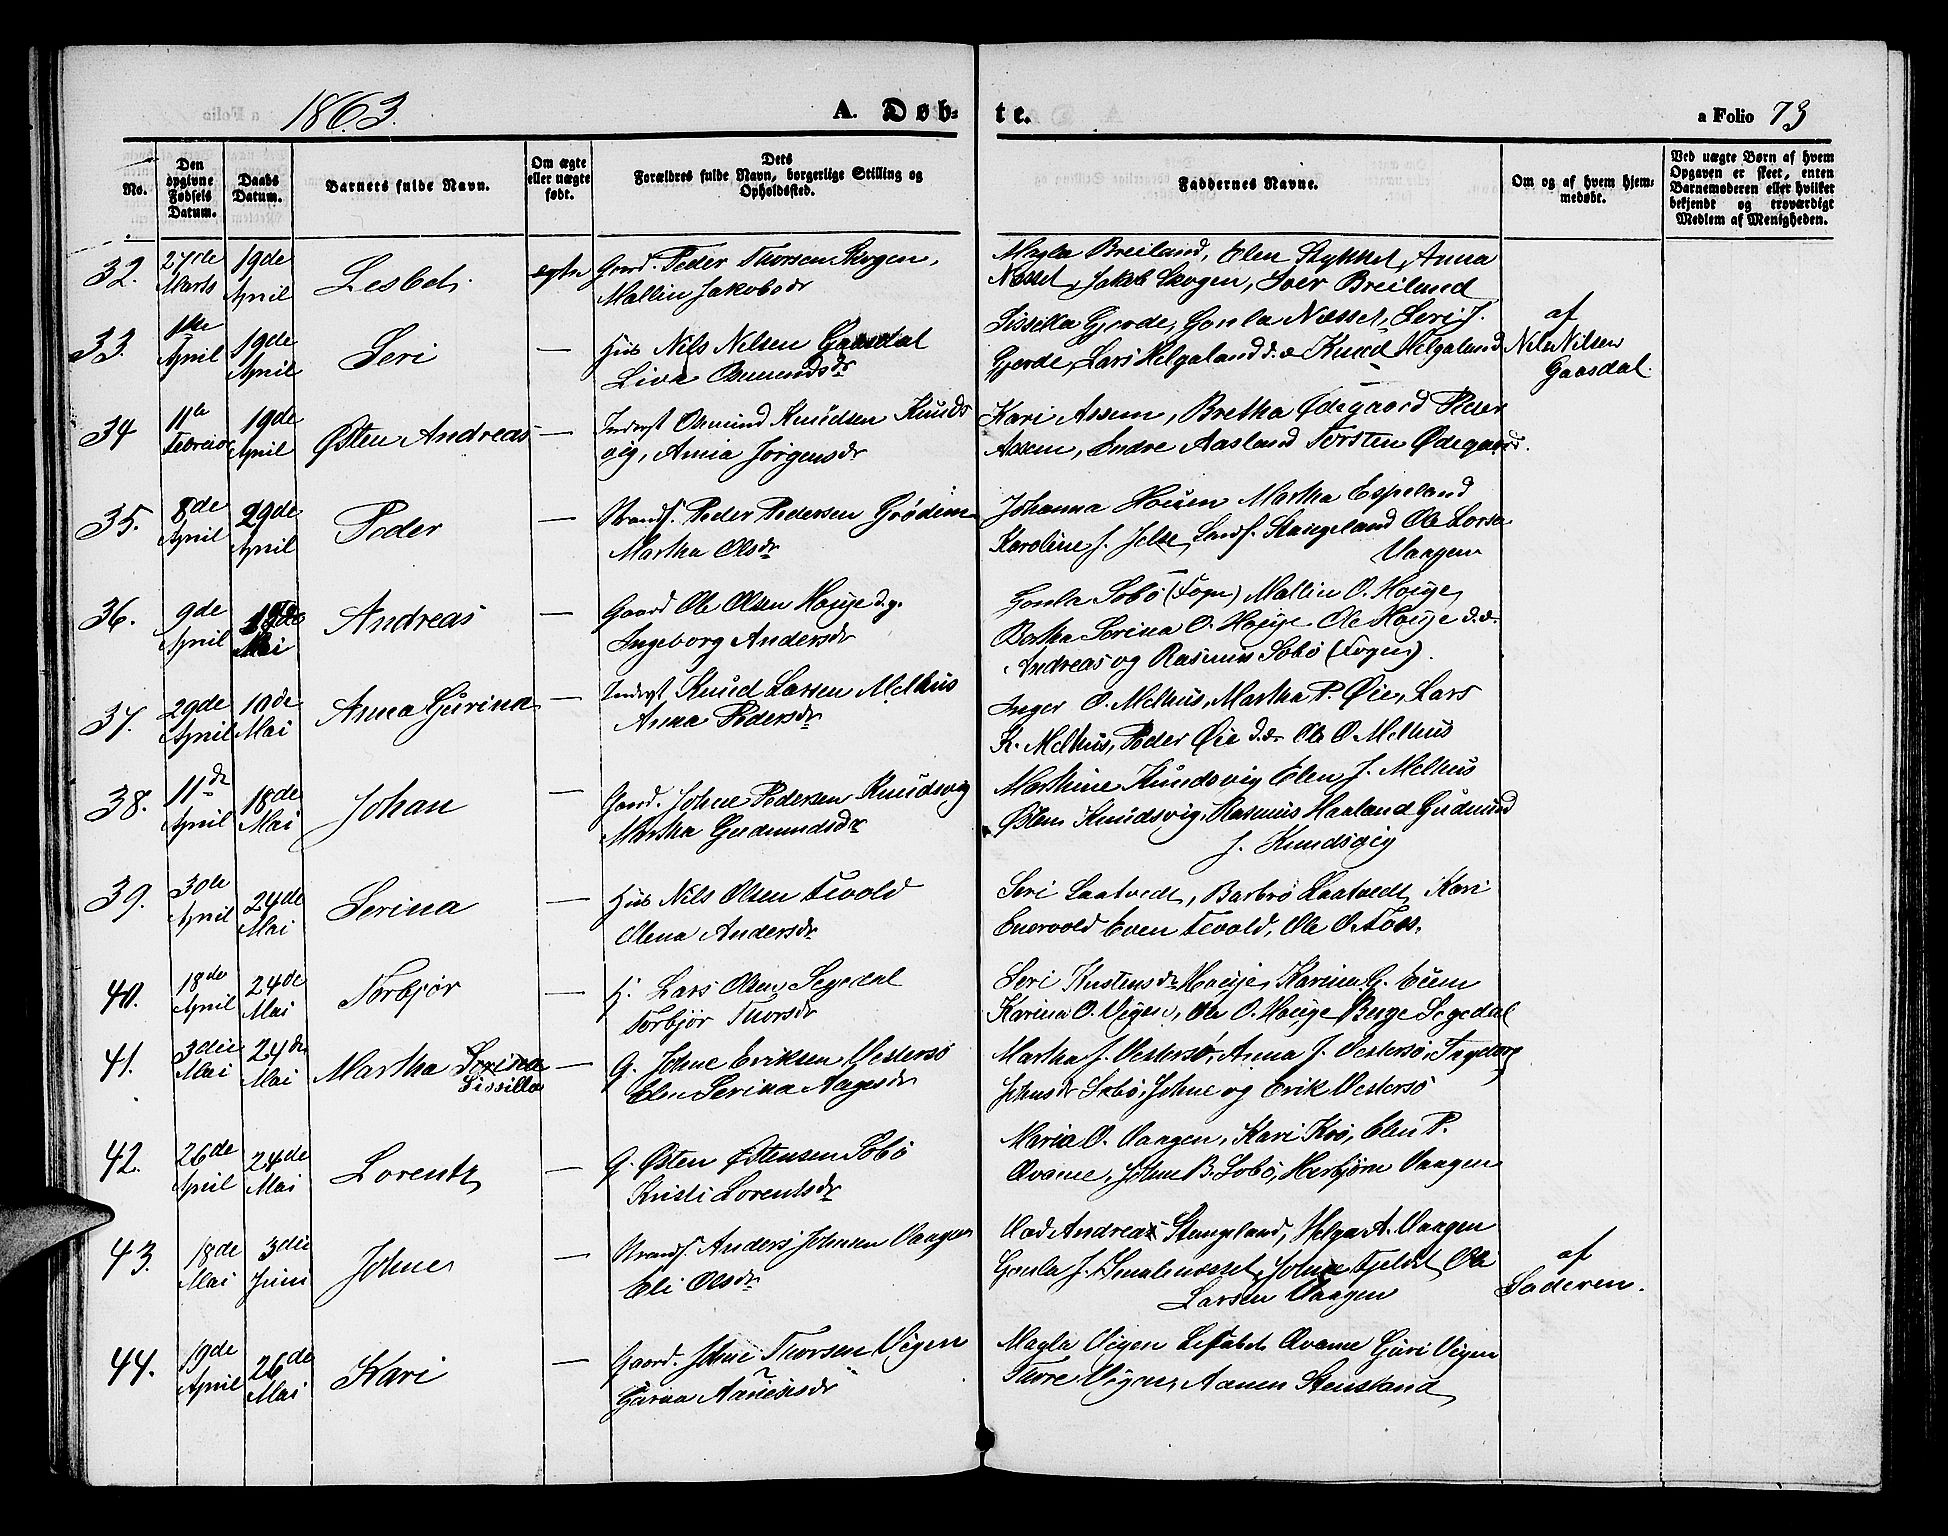 1863. A. Døb-
te. a Folio 73
No.
Den opgivne Fødsels Datum.
Daabs Datum.
Barnets fulde Navn.
Om ægte eller uægte født.
Dets Forældres fulde Navn, borgerlige Stilling og Opholdssted.
Faddernes Navne.
Om og af hvem hjemmedøbt.
Ved uægte Børn af hvem Opgaven er skeet, enten Barnemoderen eller hvilket bekjendt og troværdigt Medlem af Menigheden.
32. 27de Marts 19de April Lesbet. egte Gaard. Peder Thorsen Skogen,
Mallin Jakobsdr
Magla Breiland, Elen Stykket, Anna
Nesset, Jakob Skogen, Iver Breiland
33. 1ste April 19de April Seri — Hus Nils Nilsen Gaasdal
Liva Osmundsdr
Sissilla Gjerde, Gonla Næsset, Seri J.
Gjerde, Lars Helgaland d. æ Knud Helgaland
af
Nils Nilsen
Gaasdal.
34 11te Februar 19de April Østen Andreas — Inderst Osmund Knudsen Knuds
vig, Anna Jørgensdr
Kari Assem, Bretha Ødegaard Peder
Assem, Endre Aasland Torsten Ødegaard.
35. 8de April 29de April Peder — Strands. Peder Pedersen Grødem
Martha Olsdr
Johanna Housen Martha Espeland
Karoline J. Jelse, Stangeland Ole Lorsa
Vaagen
36. 9de April Mai Andreas — Gaard Ole Olsen Houge d.y.
Ingeborg Andersdr
Gonla Sobø (Fogn) Mallin O. Houge,
Bertha Serina O. Houge Ole Houge d.æ.
Andreas og Rasmus Sobø (Fogn).
37. 29de April 19de Mai Anna Gurina — Inderst Knud Larsen Melhus
Anna Pedersdr
Inger O. Melhus, Martha P. Øie, Lars
K. Melhus, Peder Øie d.æ. Ole O. Melhus
38. 11de April 18de Mai Johan — Gaard. Johne Pedersen Knudsvig
Martha Gudmundsdr
Marthine Knudsvig Elen J. Melhus
Østen Knudsvig, Rasmus Haaland Gudmund
J. Knudsvig
39. 30de April 24de Mai Serina — Hus Nils Olsen Tvold
Olena Andersdr
Seri Laatvedt, Barbrø Laatvedt, Kari
Even Tvold, Ole O. Foss.
40. 18de April 24de Mai Torbjør — H. Lars Olsen Segedal
Torbjør Thorsdr
Seri Houge, Karina G. Eiem
Karina O. Vigen, Ole O. Houge Berge Segedal
41. 3die Mai 24de Mai Martha Serina — G. Johne Eriksen Vestersø
Sissilla
Elen Serina Aagesdr
Martha J. Vestersø, Anna J. Vestersø, Ingeborg
Johnsdr Sobø, Johne og Erik Vestersø
42. 26de April 24de Mai Lorentz — G. Østen Østensen Sobø
Kristi Lorentsdr
Maria O. Vaagen, Kari Krø, Elen P.
Qvame, Johne B. Sobø, Herbjørn Vaagen
43. 18de Mai 3die Juni Johne — Strands. Anders Johnsen Vaagen
Eli Olsdr
Andreas Stangeland, Helga A. Vaagen
Gonla J. Smalenæsset, Johne Fjeldet, Ole
Larsen Vaagen
af
Faderen.
44. 19de April 26de Mai Kari — Gaard. Johne Thorsen Vigen
Gurina Aanensdr
Magla Vigen Lisabet Qvame Guri Vigen
Tore Vigen, Aanen Stensland